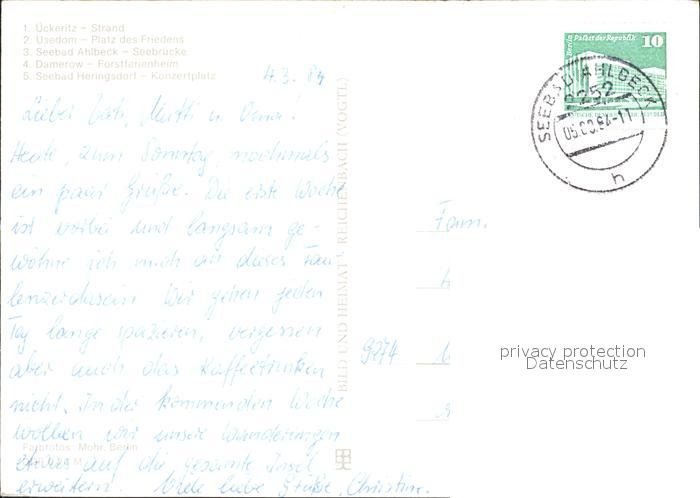 1. Ückeritz – Strand
2. Usedom – Platz des Friedens
3. Seebad Ahlbeck – Seebrücke
4. Damerow – Forstferienheim
5. Seebad Heringsdorf – Konzertplatz
4.3.84
Lieber Vati, Mutti u. Oma!
Heute, zum Sonntag, nochmals
ein paar Grüße. Die erste Woche
ist vorbei und langsam ge-
wöhne ich mich an dieses Fau-
lenzerdasein. Wir gehen jeden
Tag lange spazieren, vergessen
aber auch das Kaffeetrinken
nicht. In der kommenden Woche
wollen wir unsere Wanderungen
etwas auf die gesamte Insel
erweitern. Viele liebe Grüße, Christine.
Farbfotos: Mohr, Berlin
BILD UND HEIMAT REICHENBACH (VOGTL)
Berlin Palast der Republik
10
SEEBAD AHLBECK
2252
05.03.84-11
h
Fam.
9274
privacy protection
Datenschutz